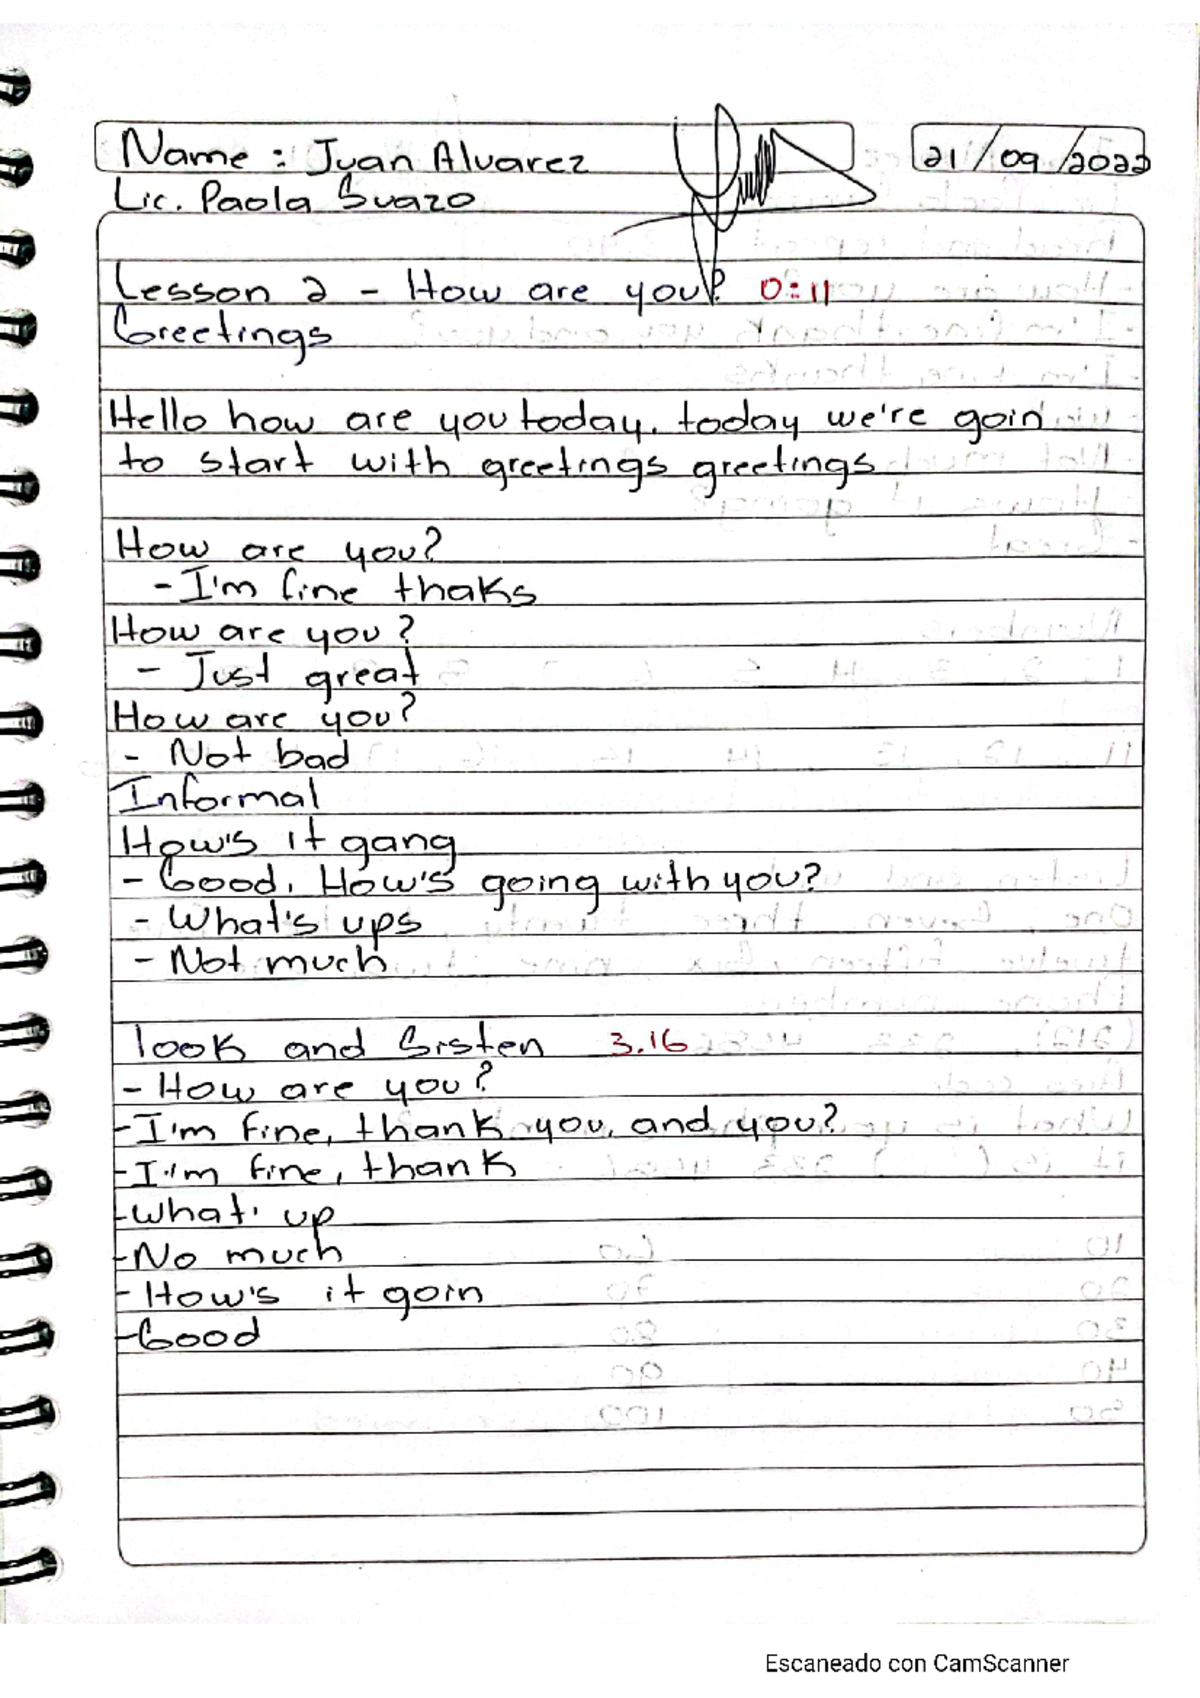 Name : Juan Alvarez
21/09/2022
Lic. Paola Suazo
Lesson 2 - How are you? 0:11
Greetings
Hello how are you today. today we're goin
to start with greetings greetings
How are you?
- I'm fine thaks
How are you?
- Just great
How are you?
- Not bad
Informal
How's it gang
- Good. How's going with you?
- What's ups
- Not much
look and Sisten 3.16
- How are you?
- I'm fine, thank you, and you?
- I'm fine, thank
- What' up
- No much
- How's it goin
- Good
Escaneado con CamScanner